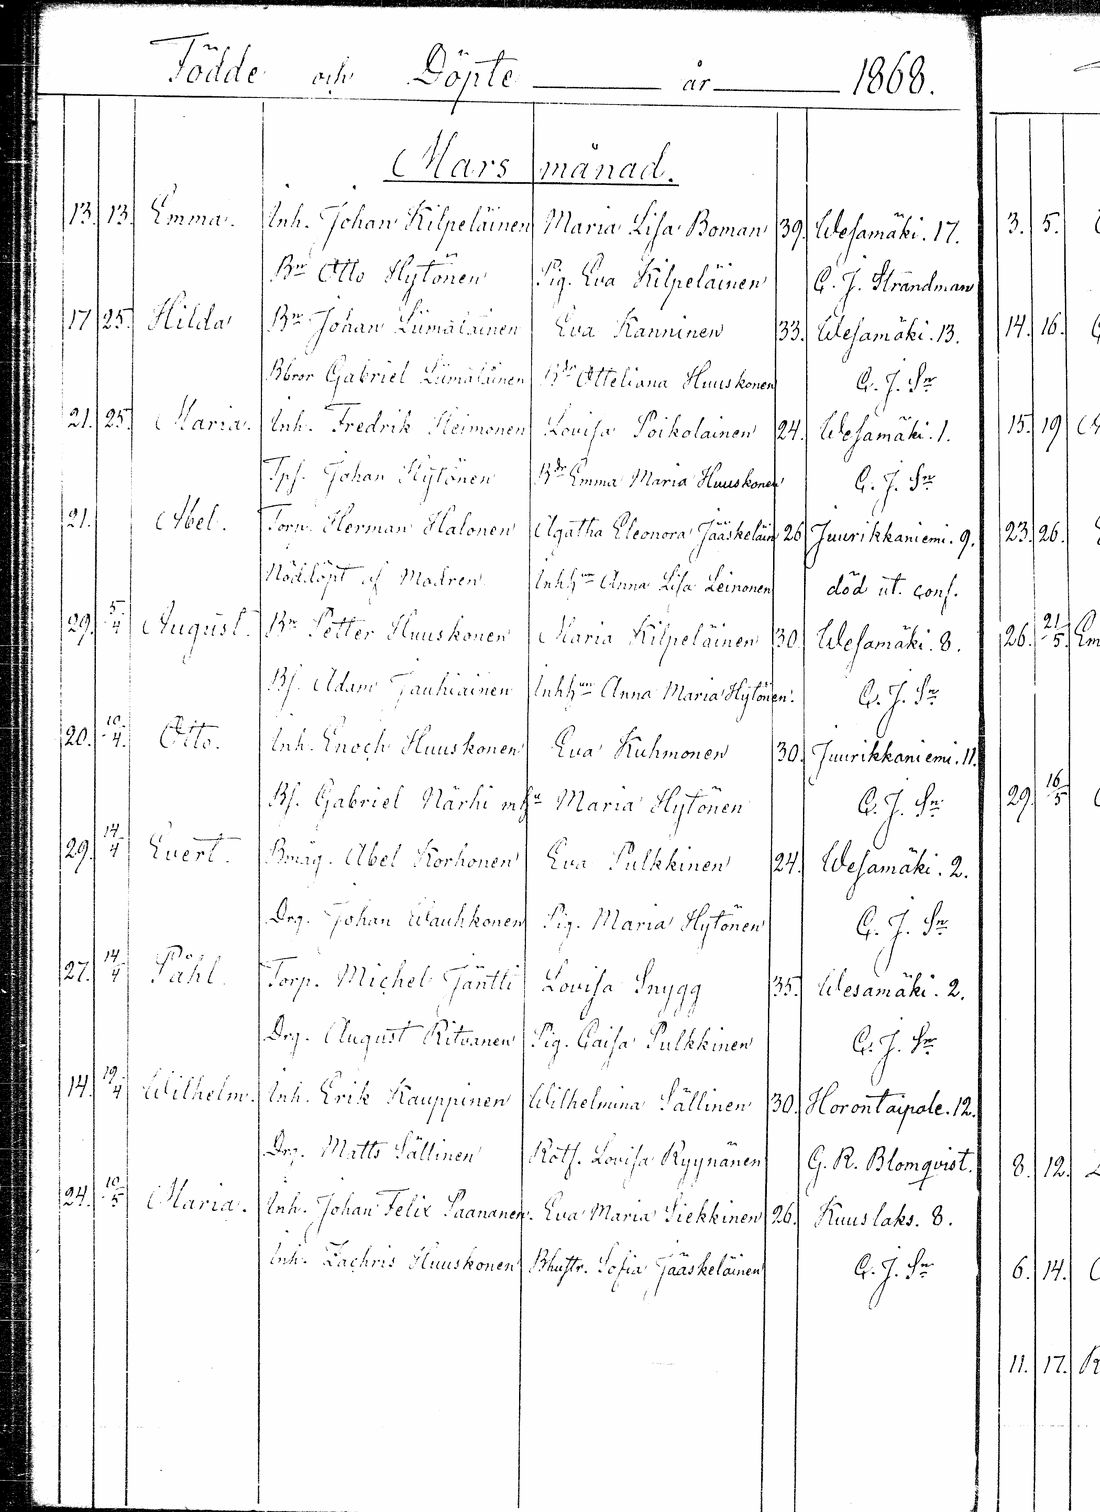 Födde och Döpte år 1868.
Mars månad.
13. 13. Emma. Inh. Johan Kilpeläinen Maria Lisa Boman 39. Wesamäki. 17.
Bn Otto Hytönen Pig. Eva Kilpeläinen C. J. Strandman
17 25. Hilda Bn Johan Liimatainen Eva Kanninen 33. Wesamäki. 13.
Bbror Gabriel Liimatainen Bdr Otteliana Huuskonen C. J. Sn
21. 25. Maria. Inh. Fredrik Heimonen Lovisa Poikolainen 24. Wesamäki. 1.
Tps. Johan Hytönen Bdr Emma Maria Huuskonen C. J. Sn
21. Abel. Torp. Herman Halonen Agatha Eleonora Jääskeläin 26 Juurikkaniemi. 9.
Nöddöpt af Modren Inhhun Anna Lisa Leinonen död ut. conf.
29. 5/4 August. Bn Petter Huuskonen Maria Kilpeläinen 30. Wesamäki. 8.
Bs. Adam Jauhiainen Inhhun Anna Maria Hytönen. C. J. Sn
20. 10/4. Otto. Inh. Enoch Huuskonen Eva Kuhmonen 30. Juurikkaniemi. 11.
Bs. Gabriel Närhi mhu Maria Hytönen C. J. Sn
29. 14/4 Evert. Bmåg. Abel Korhonen Eva Pulkkinen 24. Wesamäki. 2.
Drg. Johan Wauhkonen Pig. Maria Hytönen C. J. Sn
27. 14/4 Påhl. Torp. Michel Jäntti Lovisa Snygg 35. Wesamäki. 2.
Drg. August Ritvanen Pig. Caisa Pulkkinen C. J. Sn
14. 19/4 Wilhelm. Inh. Erik Kauppinen Wilhelmina Sällinen 30. Horontaipale. 12.
Drg. Matts Sällinen Rotf. Lovisa Ryynänen G. R. Blomqvist.
24. 10/5 Maria. Inh. Johan Felix Paananen. Eva Maria Siekkinen 26. Kuuslaks. 8.
Inh. Zachris Huuskonen Bhustr. Sofia Jääskeläinen C. J. Sn
3. 5.
14. 16.
15. 19
23. 26.
26. 21/5. Em
29. 16/5
8. 12.
6. 14.
11. 17. R